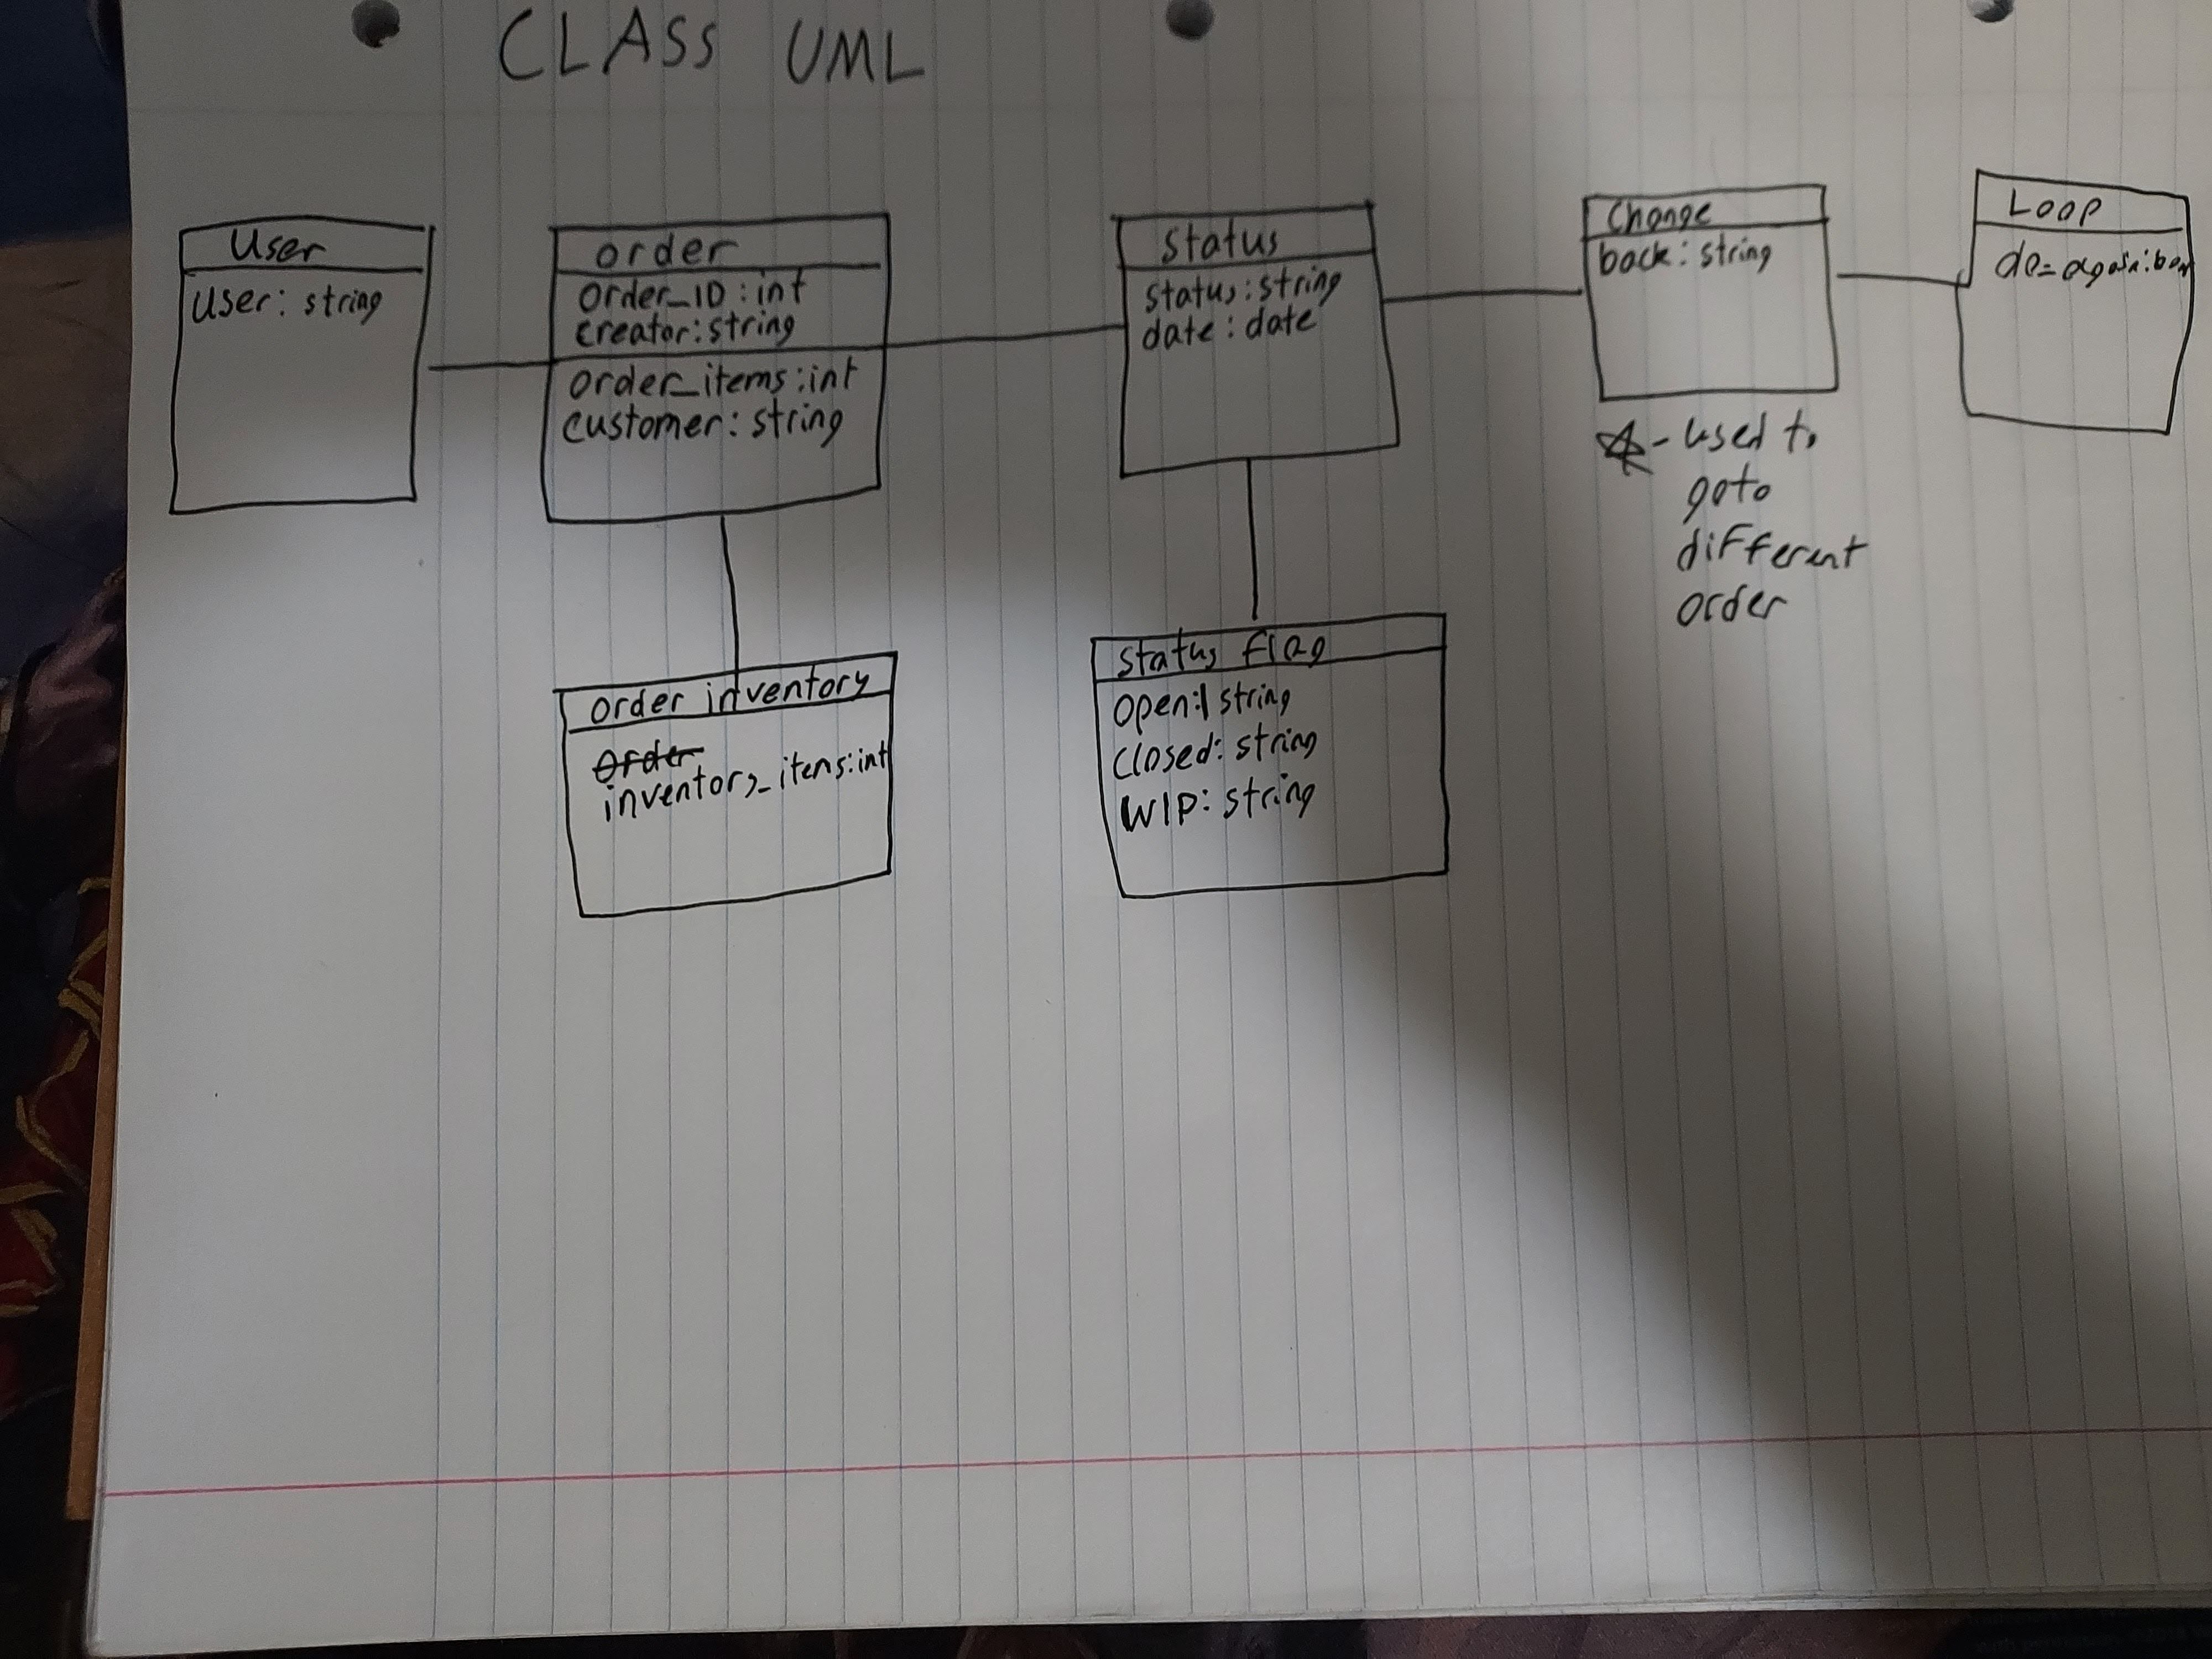 CLASS UML
User
User: string
order
order_ID: int
creator: string
order_items: int
customer: string
order inventory
order
inventory_items: int
Status
status: string
date: date
Status flag
open: string
Closed: string
WIP: string
Change
back: string
- used to
goto
different
order
Loop